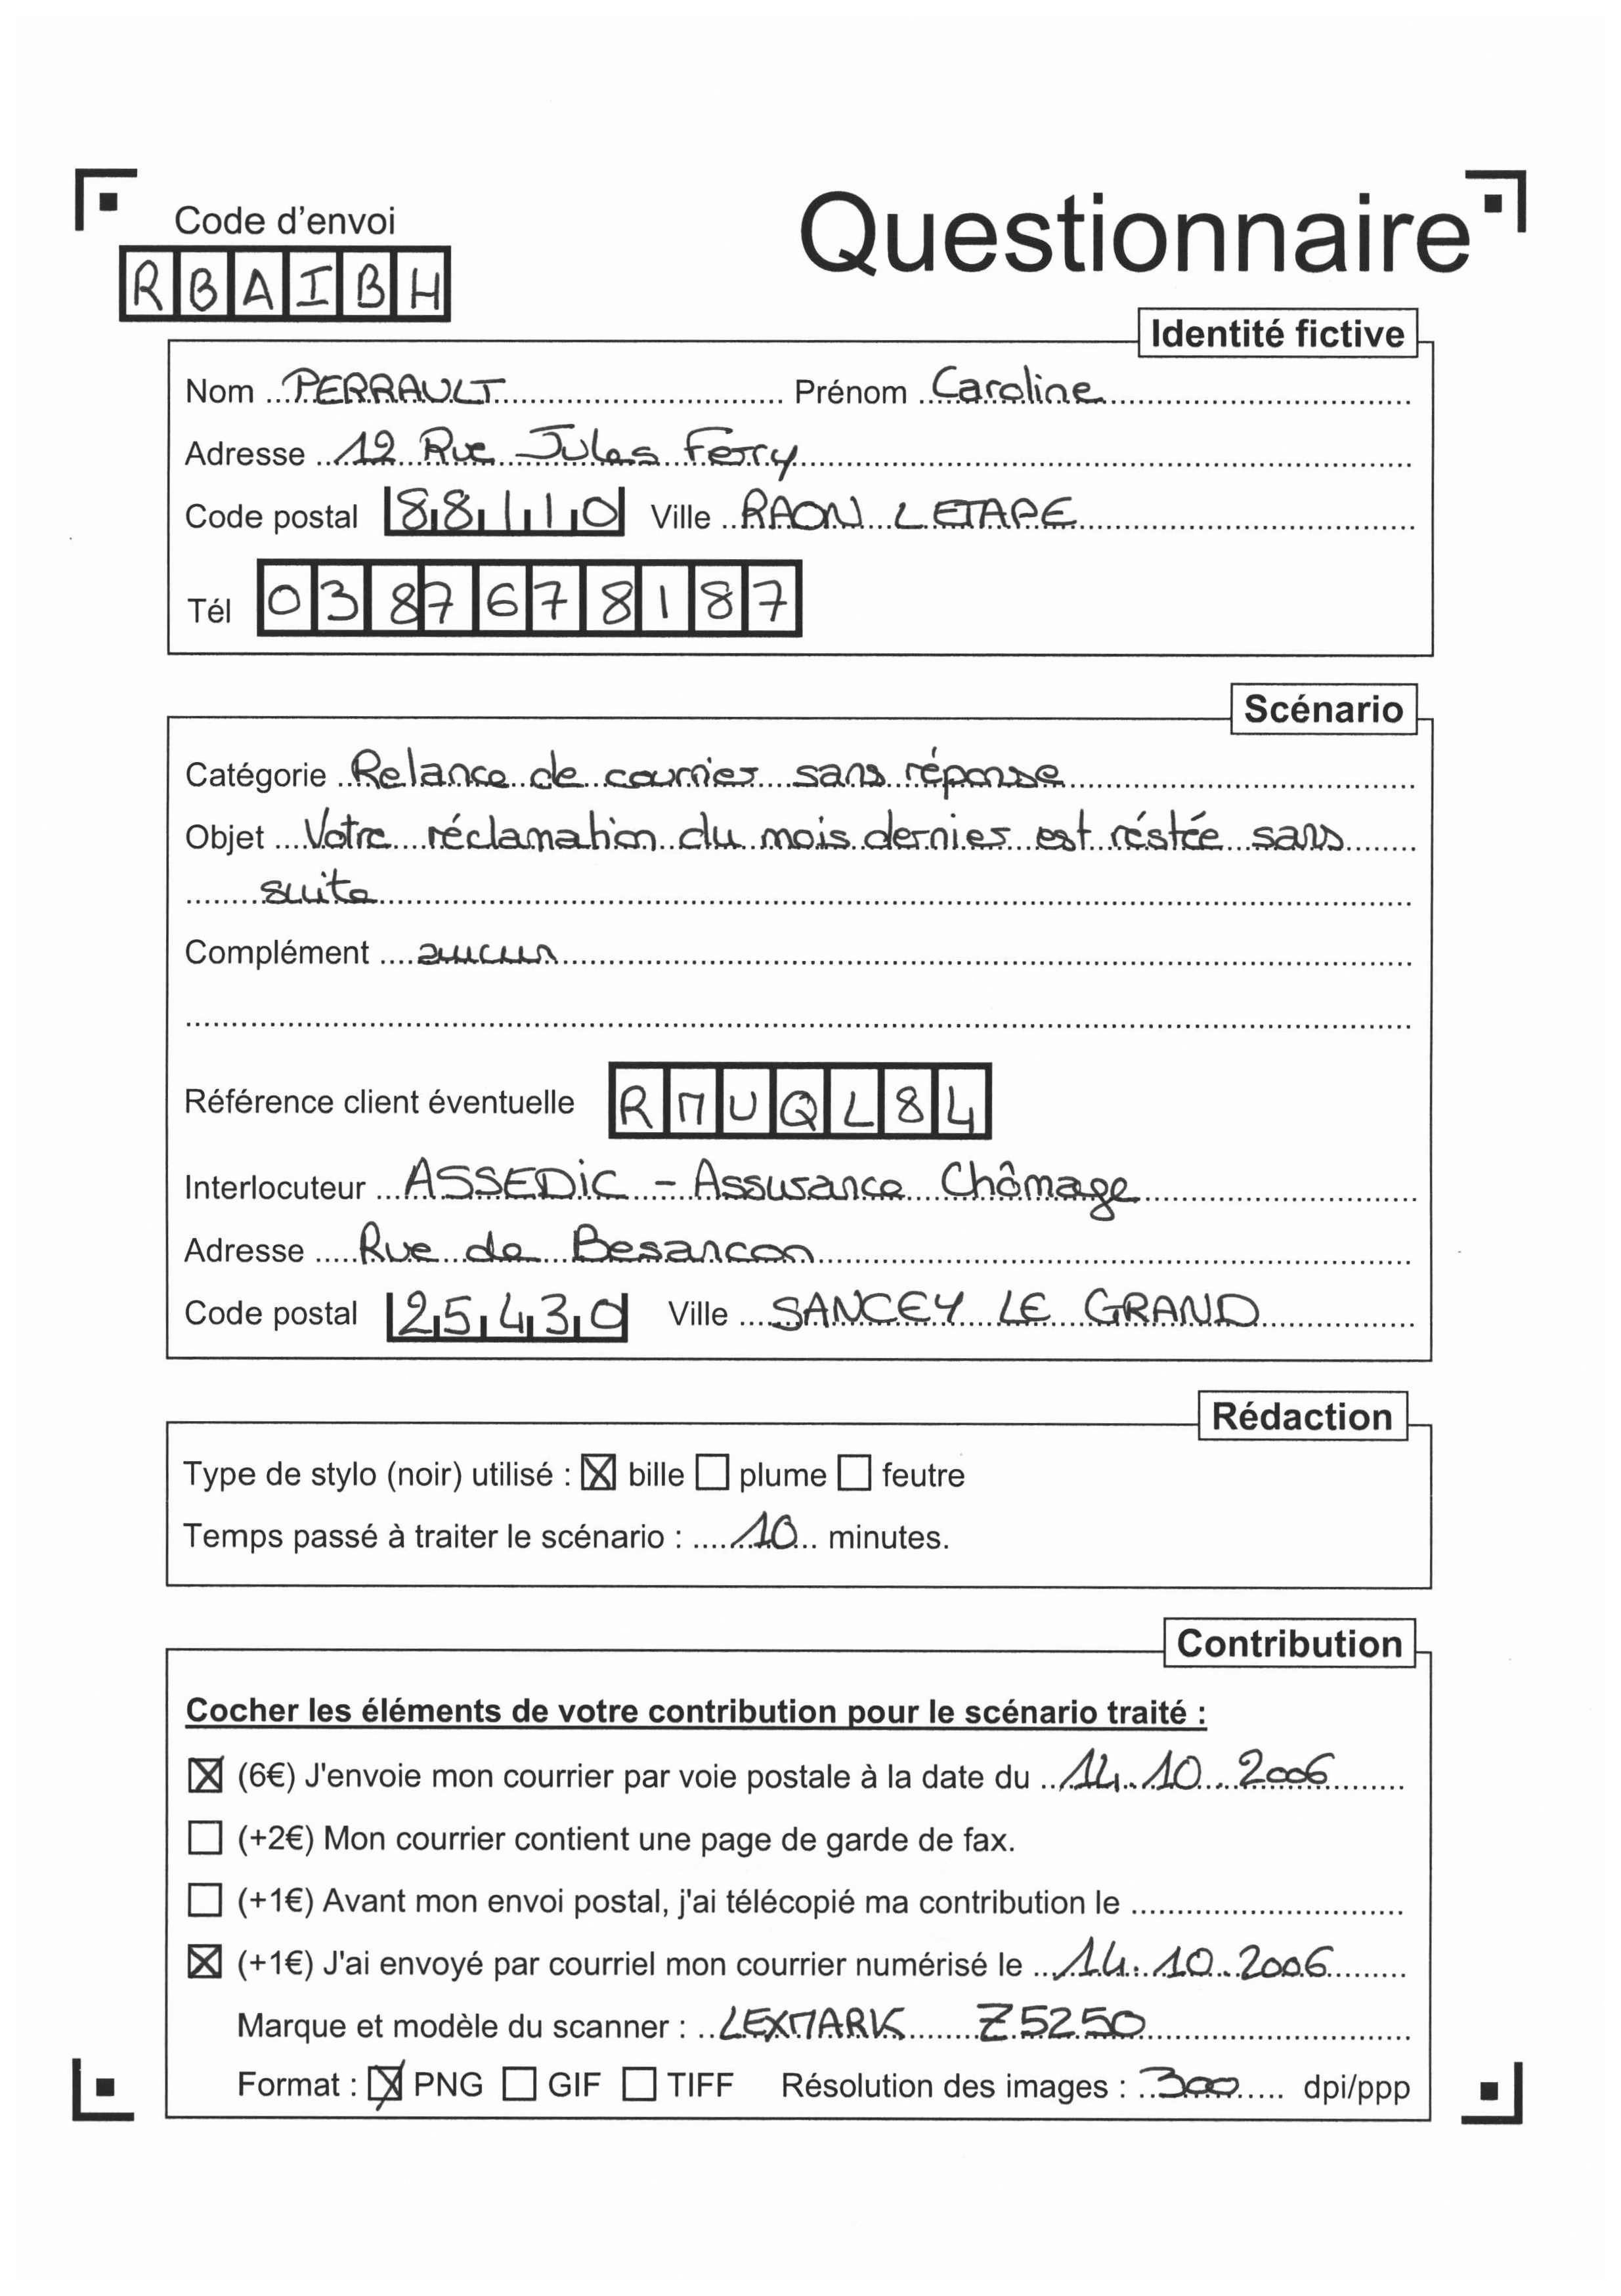 Code d'envoi
Questionnaire
RBAIBH
Identité fictive
Nom PERRAULT Prénom Caroline
Adresse 12 Rue Jules Ferry
Code postal 88110 Ville RAON L ETAPE
Tél 0387678187
Scénario
Catégorie Relance de courrier sans réponse
Objet Votre réclamation du mois dernier est réstée sans
suite
Complément aucun
Référence client éventuelle RMUQL84
Interlocuteur ASSEDIC - Assurance Chômage
Adresse Rue de Besancon
Code postal 25430 Ville SANCEY LE GRAND
Rédaction
Type de stylo (noir) utilisé : ☒ bille ☐ plume ☐ feutre
Temps passé à traiter le scénario : 10 minutes.
Contribution
Cocher les éléments de votre contribution pour le scénario traité :
☒ (6€) J'envoie mon courrier par voie postale à la date du 14.10.2006
☐ (+2€) Mon courrier contient une page de garde de fax.
☐ (+1€) Avant mon envoi postal, j'ai télécopié ma contribution le
☒ (+1€) J'ai envoyé par courriel mon courrier numérisé le 14.10.2006
Marque et modèle du scanner : LEXMARK Z5250
Format : ☒ PNG ☐ GIF ☐ TIFF Résolution des images : 300 dpi/ppp